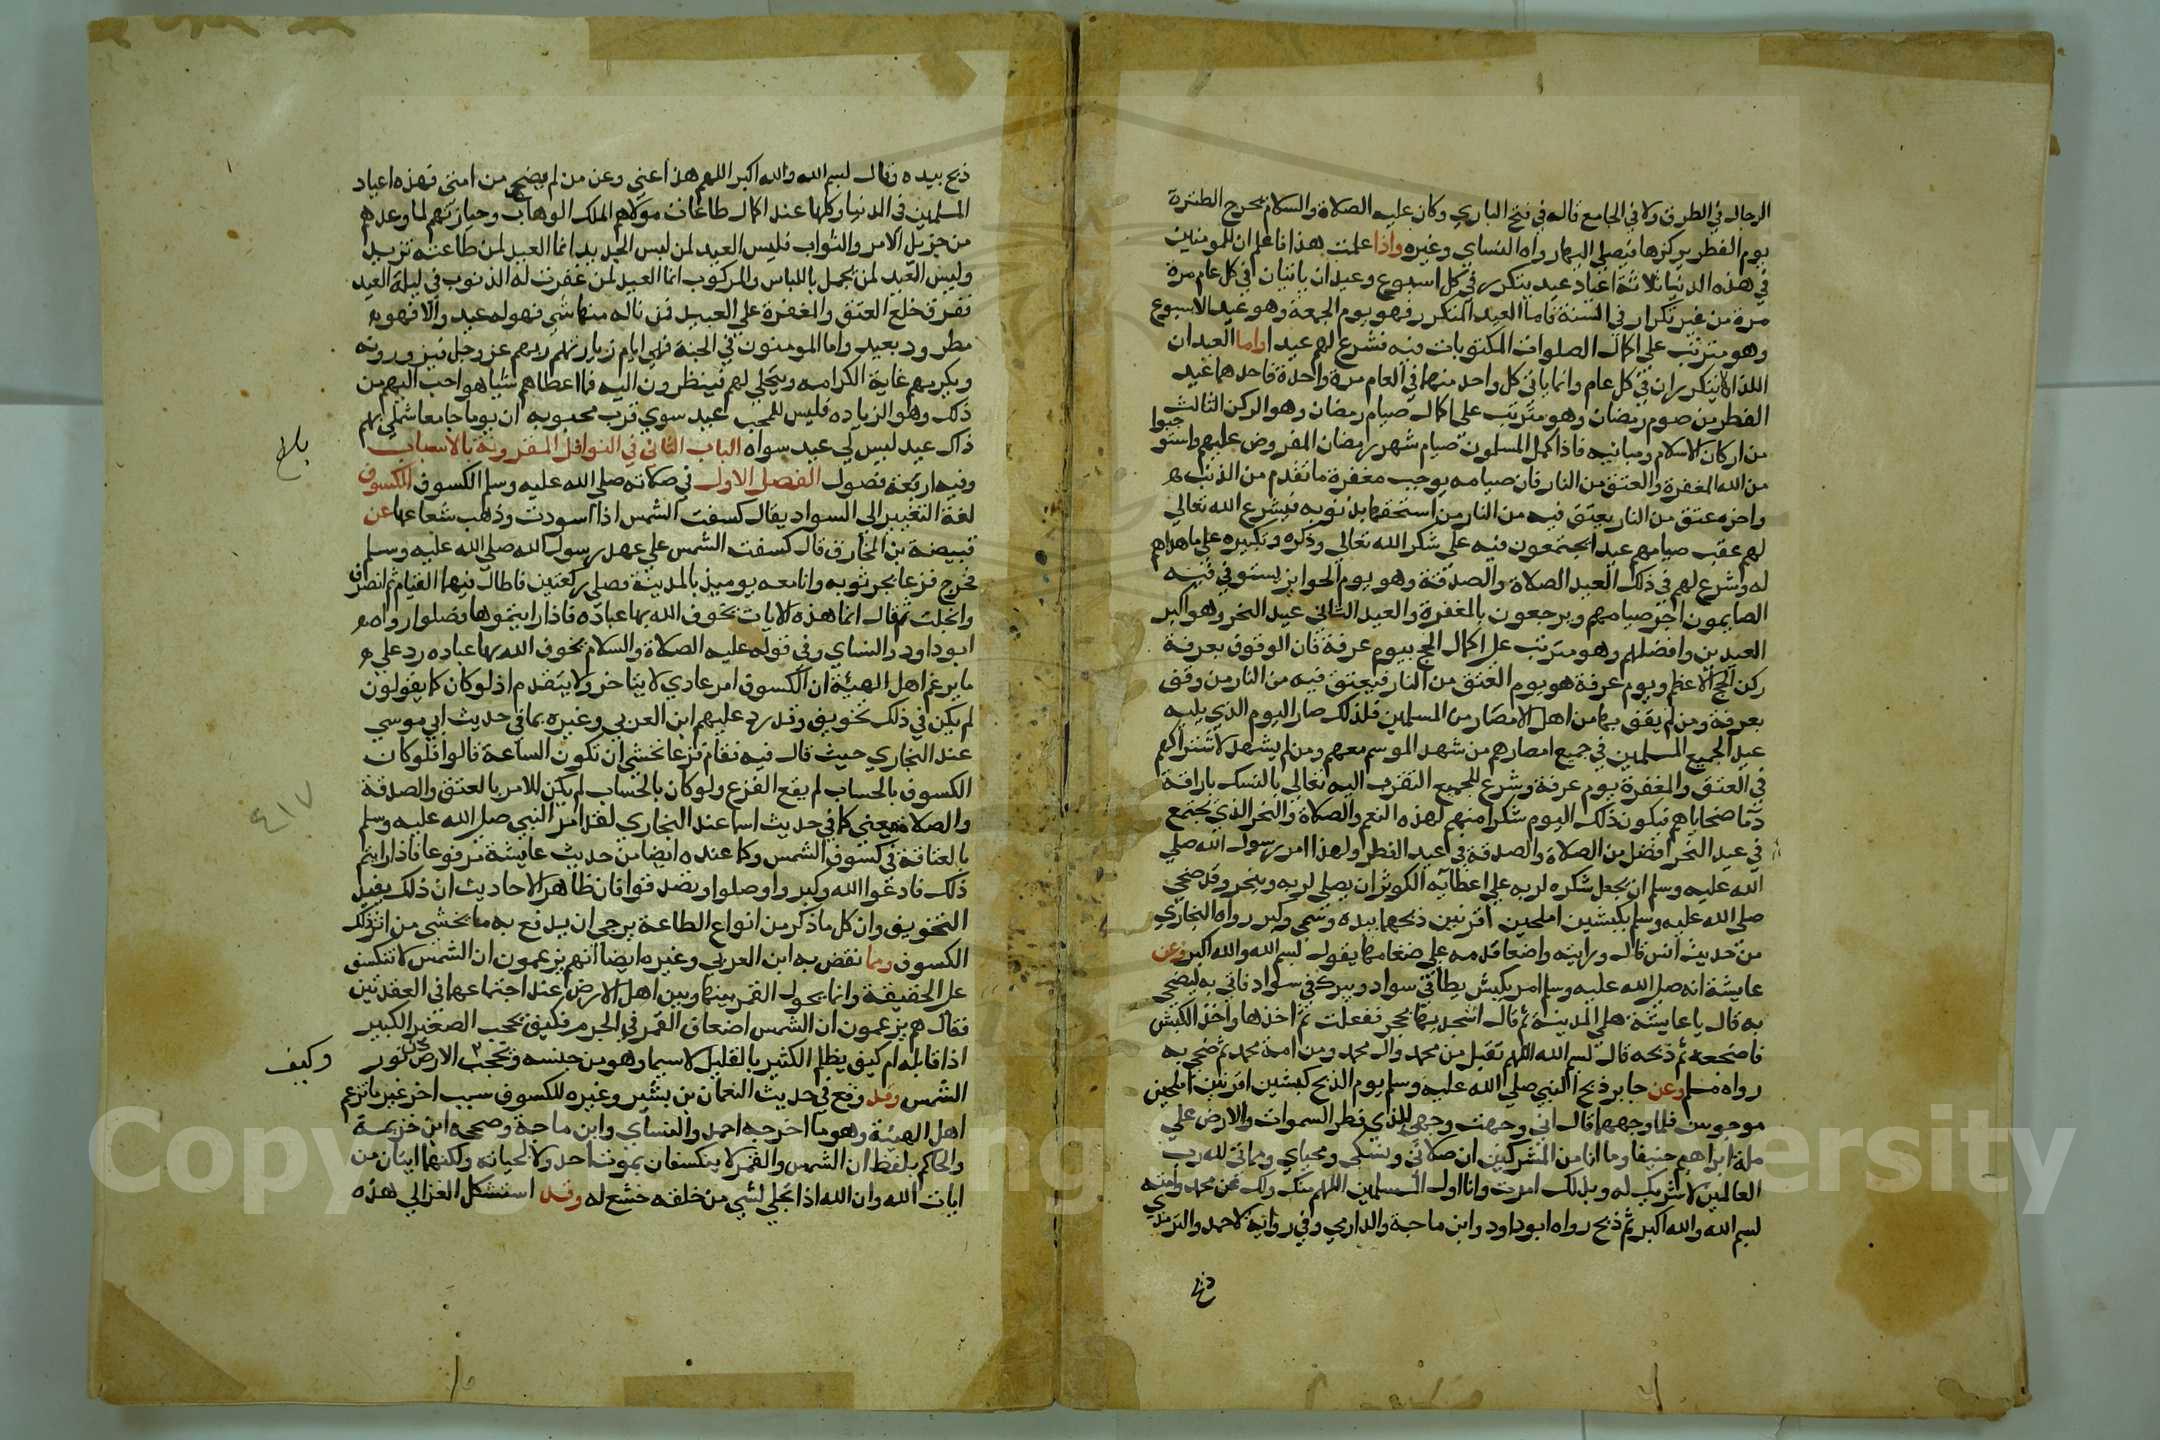 الرجال في الطرق ولا في الجامع قاله في فتح الباري وكان عليه الصلاة والسلام يخرج العنزة
يوم الفطر يركزها فيصلي اليها رواه النساي وغيره واذا علمت هذا فاعلم ان للمومنين
في هذه الدنيا ثلاثة اعياد عيد يتكرر في كل اسبوع وعيدان ياتيان في كل عام مرة
مرة من غير تكرار في السنة فاما العيد المتكرر فهو يوم الجمعة وهو عيد الاسبوع
وهو مترتب على اكمال الصلوات المكتوبات فيه فشرع لهم عيدا واما العيدان
اللذان لا يتكرران في كل عام وانما ياتي كل واحد منهما في العام مرة واحدة فاحدهما عيد
الفطر من صوم رمضان وهو مترتب على اكمال صيام رمضان وهو الركن الثالث
من اركان الاسلام ومبانيه فاذا كمل المسلمون صيام شهر رمضان المفروض عليهم واستوجبوا
من الله المغفرة والعتق من النار فان صيامه يوجب مغفرة ما تقدم من الذنب
واخره عتق من النار يعتق فيه من النار من استحقها بذنوبه فشرع الله تعالى
لهم عقب صيامهم عيدا يجتمعون فيه على شكر الله تعالى وذكره وتكبيره على ما هداهم
له وشرع لهم في ذلك العيد الصلاة والصدقة وهو يوم الجوايز يستوفي فيه
الصايمون اجر صيامهم ويرجعون بالمغفرة والعيد الثاني عيد النحر وهو اكبر
العيدين وافضلهم وهو مترتب على اكمال الحج بيوم عرفة فان الوقوف بعرفة
ركن الحج الاعظم ويوم عرفة هو يوم العتق من النار فيعتق فيه من النار من وقف
بعرفة ومن لم يقف بها من اهل الامصار من المسلمين فلذلك صار اليوم الذي يليه
عيد الجميع المسلمين في جميع امصارهم من شهد الموسم معهم ومن لم يشهد لاشتراكهم
في العتق والمغفرة يوم عرفة وشرع للجميع التقرب اليه تعالى بالنسك باراقة
دما ضحاياهم فيكون ذلك اليوم شكرا منهم لهذه النعم والصلاة والنحر الذي يجتمع
في عيد النحر افضل من الصلاة والصدقة في عيد الفطر ولهذا امر رسول الله صلى
الله عليه وسلم ان يجعل شكره لربه على اعطايه الكوثر ان يصلي لربه وينحر وقد ضحى
صلى الله عليه وسلم بكبشين املحين اقرنين ذبحهما بيده وسمى وكبر رواه البخاري
من حديث انس قال ورايته واضعا قدمه على صفاحهما يقول بسم الله والله اكبر وعن
عايشة انه صلى الله عليه وسلم امر بكبش يطا في سواد ويبرك في سواد فاتي به ليضحي
به قال يا عايشة هلمي المدية ثم قال اشحذيها بحجر ففعلت ثم اخذها واخذ الكبش
فاضجعه ثم ذبحه قال بسم الله اللهم تقبل من محمد وال محمد ومن امة محمد ثم ضحى به
رواه مسلم وعن جابر ذبح النبي صلى الله عليه وسلم يوم الذبح كبشين اقرنين املحين
موجوين فلما وجههما قال اني وجهت وجهي للذي فطر السموات والارض على
ملة ابراهيم حنيفا وما انا من المشركين ان صلاتي ونسكي ومحياي ومماتي لله رب
العالمين لا شريك له وبذلك امرت وانا اول المسلمين اللهم منك ولك عن محمد وامته
بسم الله والله اكبر ثم ذبح رواه ابو داود وابن ماجة والدارمي وفي رواية لاحمد والترمذي
ذبح
ذبح بيده وقال بسم الله والله اكبر اللهم هذا عني وعن من لم يضح من امتي فهذه اعياد
المسلمين في الدنيا وكلها عند اكمال طاعات مولاهم الملك الوهاب وحيازتهم لما وعدهم
من جزيل الاجر والثواب فليس العيد لمن لبس الجديد انما العيد لمن طاعته تزيد
وليس العيد لمن تجمل باللباس والمركوب انما العيد لمن غفرت له الذنوب في ليلة العيد
تفرق خلع العتق والمغفرة على العبيد فمن ناله منها شي فهو له عيد والا فهو
مطرود بعيد واما المومنون في الجنة فهي ايام زيارتهم ربهم عز وجل فيزورونه
ويكرمهم غاية الكرامه ويتجلى لهم فينظرون اليه فما اعطاهم شيا هو احب اليهم من
ذلك وهو الزياده فليس للمحب عيد سوي قرب محبوبه ان يوما جامعا شملي بهم
ذاك عيد ليس لي عيد سواه الباب الثاني في النوافل المقرونة بالاسباب
وفيه اربعة فصول الفصل الاول في صلاته صلى الله عليه وسلم الكسوف الكسوف
لغة التغيير الى السواد يقال كسفت الشمس اذا اسودت وذهب شعاعها عن
قبيصة بن المخارق قال كسفت الشمس على عهد رسول الله صلى الله عليه وسلم
فخرج فزعا يجر ثوبه وانا معه يوميذ بالمدينة فصلى ركعتين فاطال فيهما القيام ثم انصرف
وانجلت ثم قال انما هذه الايات يخوف الله بها عباده فاذا رايتموها فصلوا رواه
ابو داود والنساي وفي قوله عليه الصلاة والسلام يخوف الله بها عباده رد على
ما يزعم اهل الهيئة ان الكسوف امر عادي لا يتاخر ولا يتقدم اذ لو كان كما يقولون
لم يكن في ذلك تخويف وقد رد عليهم ابن العربي وغيره بما في حديث ابي موسي
عند البخاري حيث قال فيه فقام فزعا يخشى ان تكون الساعة قالوا فلو كان
الكسوف بالحساب لم يقع الفزع ولو كان بالحساب لم يكن للامر بالعتق والصدقة
والصلاة معنى كما في حديث اسما عند البخاري لقد امر النبي صلى الله عليه وسلم
بالعتاقة في كسوف الشمس وكما عنده ايضا من حديث عايشة مرفوعا فاذا رايتم
ذلك فادعوا الله وكبروا وصلوا وتصدقوا فان ظاهر الاحاديث ان ذلك يفيد
التخويف وان كل ما ذكر من انواع الطاعة يرجى ان يدفع به ما يخشى من اثر ذلك
الكسوف ومما نقض به ابن العربي وغيره ايضا انهم يزعمون ان الشمس لا تنكسف
على الحقيقة وانما يحول القمر بينها وبين اهل الارض عند اجتماعهما في العقدتين
فقال هم يزعمون ان الشمس اضعاف القمر في الجرم فكيف يحجب الصغير الكبير
اذا قابله ام كيف يظلم الكثير بالقليل لا سيما وهو من جنسه وتحجب الارض نور
الشمس وقد وقع في حديث النعمان بن بشير وغيره للكسوف سبب اخر غير ما تزعم
اهل الهيئة وهو ما اخرجه احمد والنساي وابن ماجة وصححه ابن خزيمة
والحاكم بلفظ ان الشمس والقمر لا ينكسفان بموت احد ولا لحياته ولكنهما ايتان من
ايات الله وان الله اذا تجلى لشي من خلقه خشع له وقد استشكل الغزالي هذه
بلاغ
٤١٧
وكيف